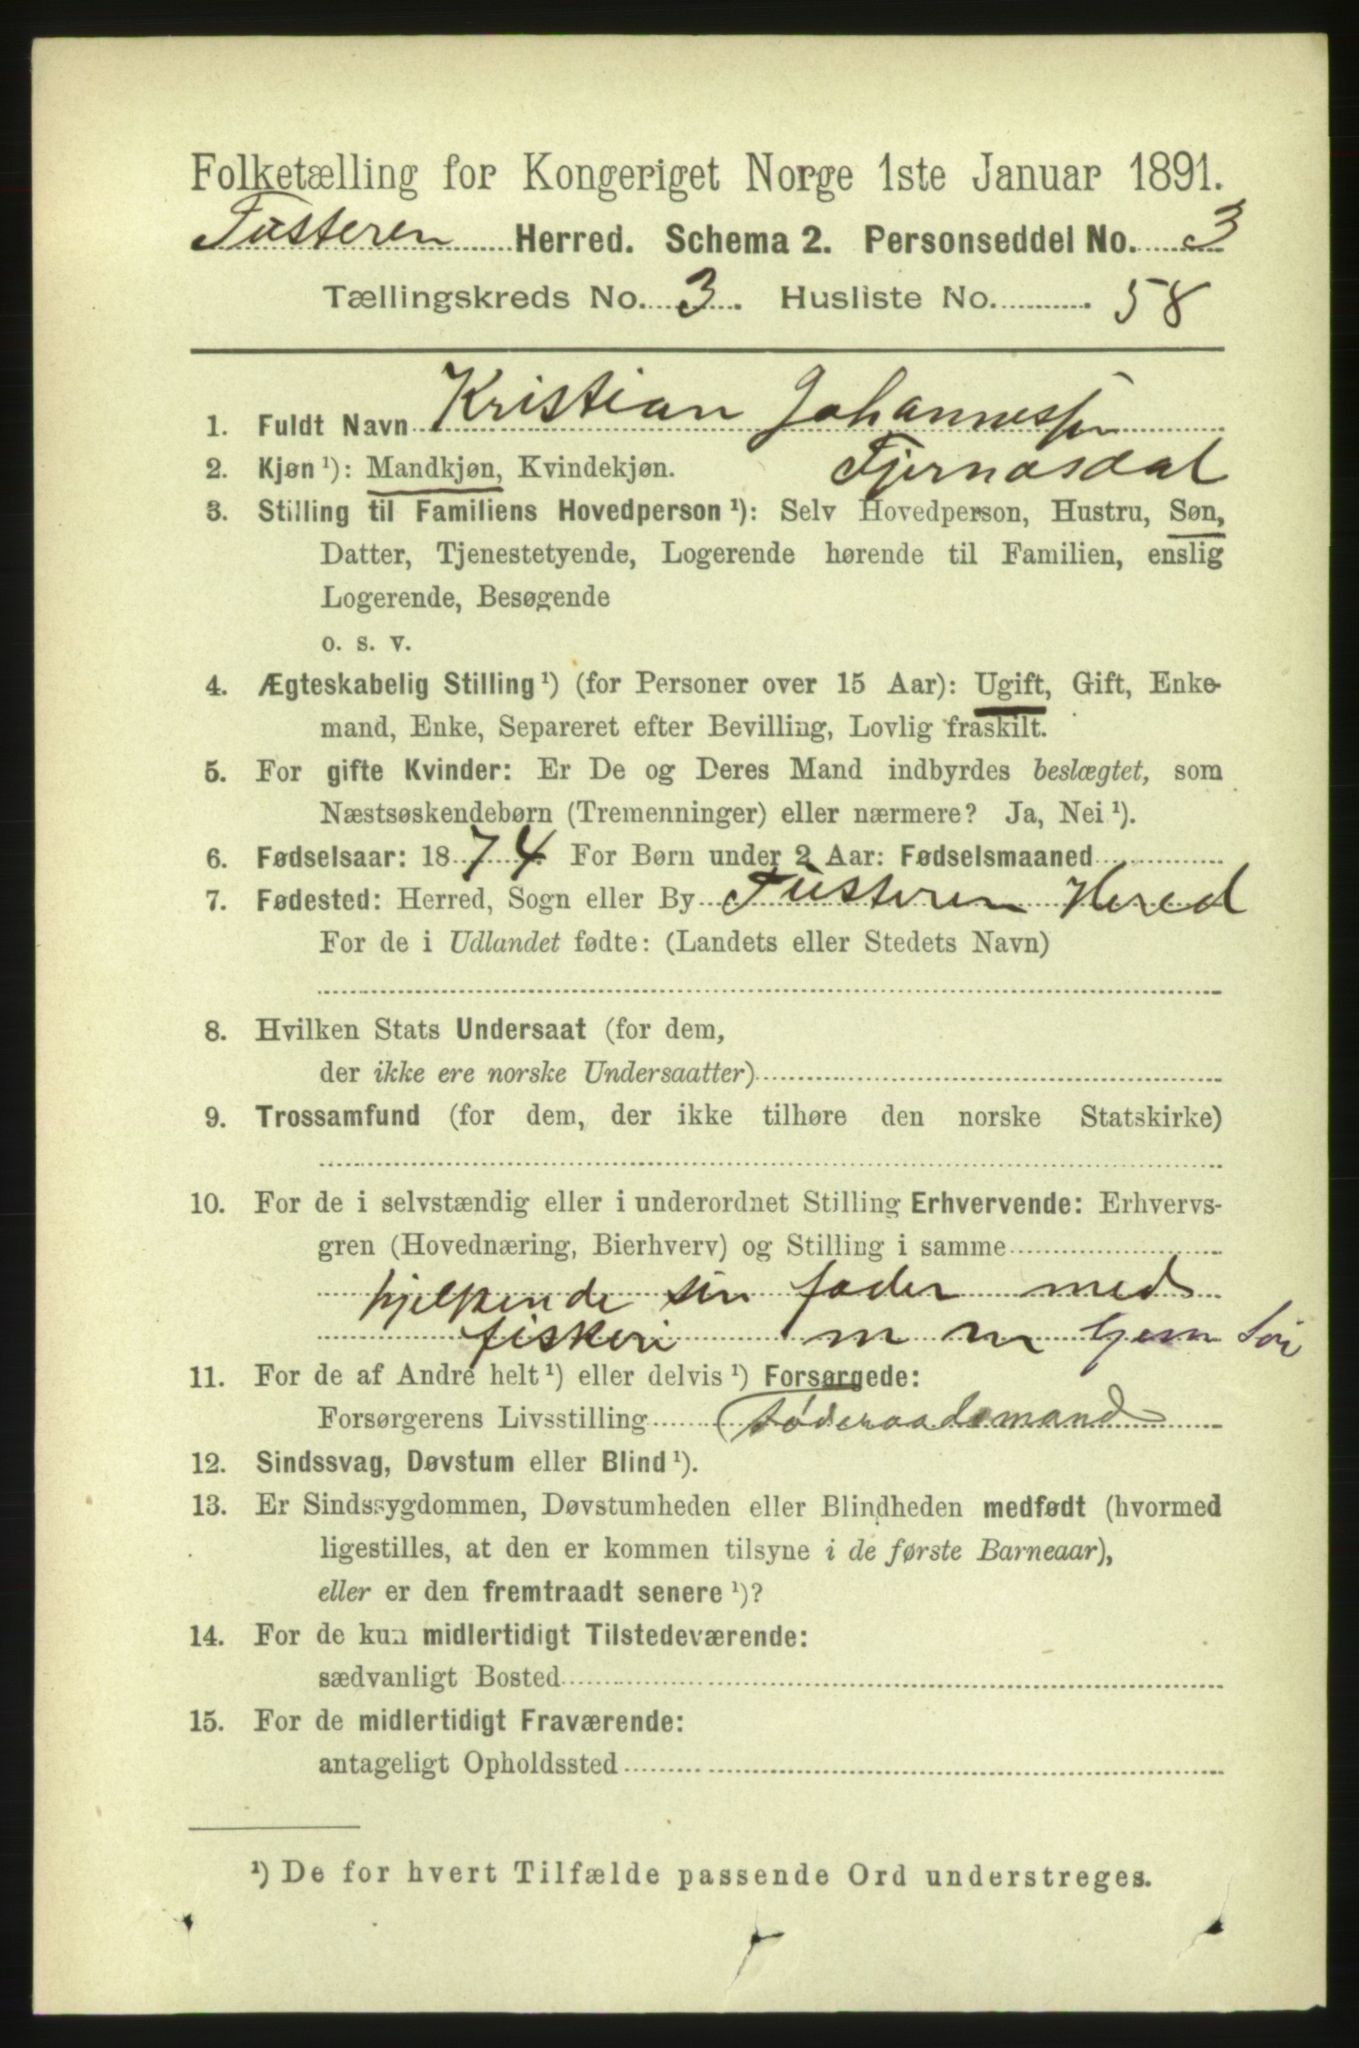 Folketælling for Kongeriget Norge 1ste Januar 1891.
Tusteren Herred. Schema 2. Personseddel No. 3
Tællingskreds No. 3. Husliste No. 58
1. Fuldt Navn Kristian Johannessen
2. Kjøn ¹): Mandkjøn, Kvindekjøn. Fjernasdal
3. Stilling til Familiens Hovedperson ¹): Selv Hovedperson, Hustru, Søn,
Datter, Tjenestetyende, Logerende hørende til Familien, enslig
Logerende, Besøgende
o. s. v.
4. Ægteskabelig Stilling ¹) (for Personer over 15 Aar): Ugift, Gift, Enke-
mand, Enke, Separeret efter Bevilling, Lovlig fraskilt.
5. For gifte Kvinder: Er De og Deres Mand indbyrdes beslægtet, som
Næstsøskendebørn (Tremenninger) eller nærmere? Ja, Nei ¹).
6. Fødselsaar: 1874. For Børn under 2 Aar: Fødselsmaaned
7. Fødested: Herred, Sogn eller By Tusteren Hered
For de i Udlandet fødte: (Landets eller Stedets Navn)
8. Hvilken Stats Undersaat (for dem,
der ikke ere norske Undersaatter)
9. Trossamfund (for dem, der ikke tilhøre den norske Statskirke)
10. For de i selvstændig eller i underordnet Stilling Erhvervende: Erhvervs-
gren (Hovednæring, Bierhverv) og Stilling i samme
hjelpende sin fader med
fiskeri m m
11. For de af Andre helt ¹) eller delvis ¹) Forsørgede:
Forsørgerens Livsstilling føderaadsmand
12. Sindssvag, Døvstum eller Blind ¹).
13. Er Sindssygdommen, Døvstumheden eller Blindheden medfødt (hvormed
ligestilles, at den er kommen tilsyne i de første Barneaar),
eller er den fremtraadt senere ¹)?
14. For de kun midlertidigt Tilstedeværende:
sædvanligt Bosted
15. For de midlertidigt Fraværende:
antageligt Opholdssted
¹) De for hvert Tilfælde passende Ord understreges.